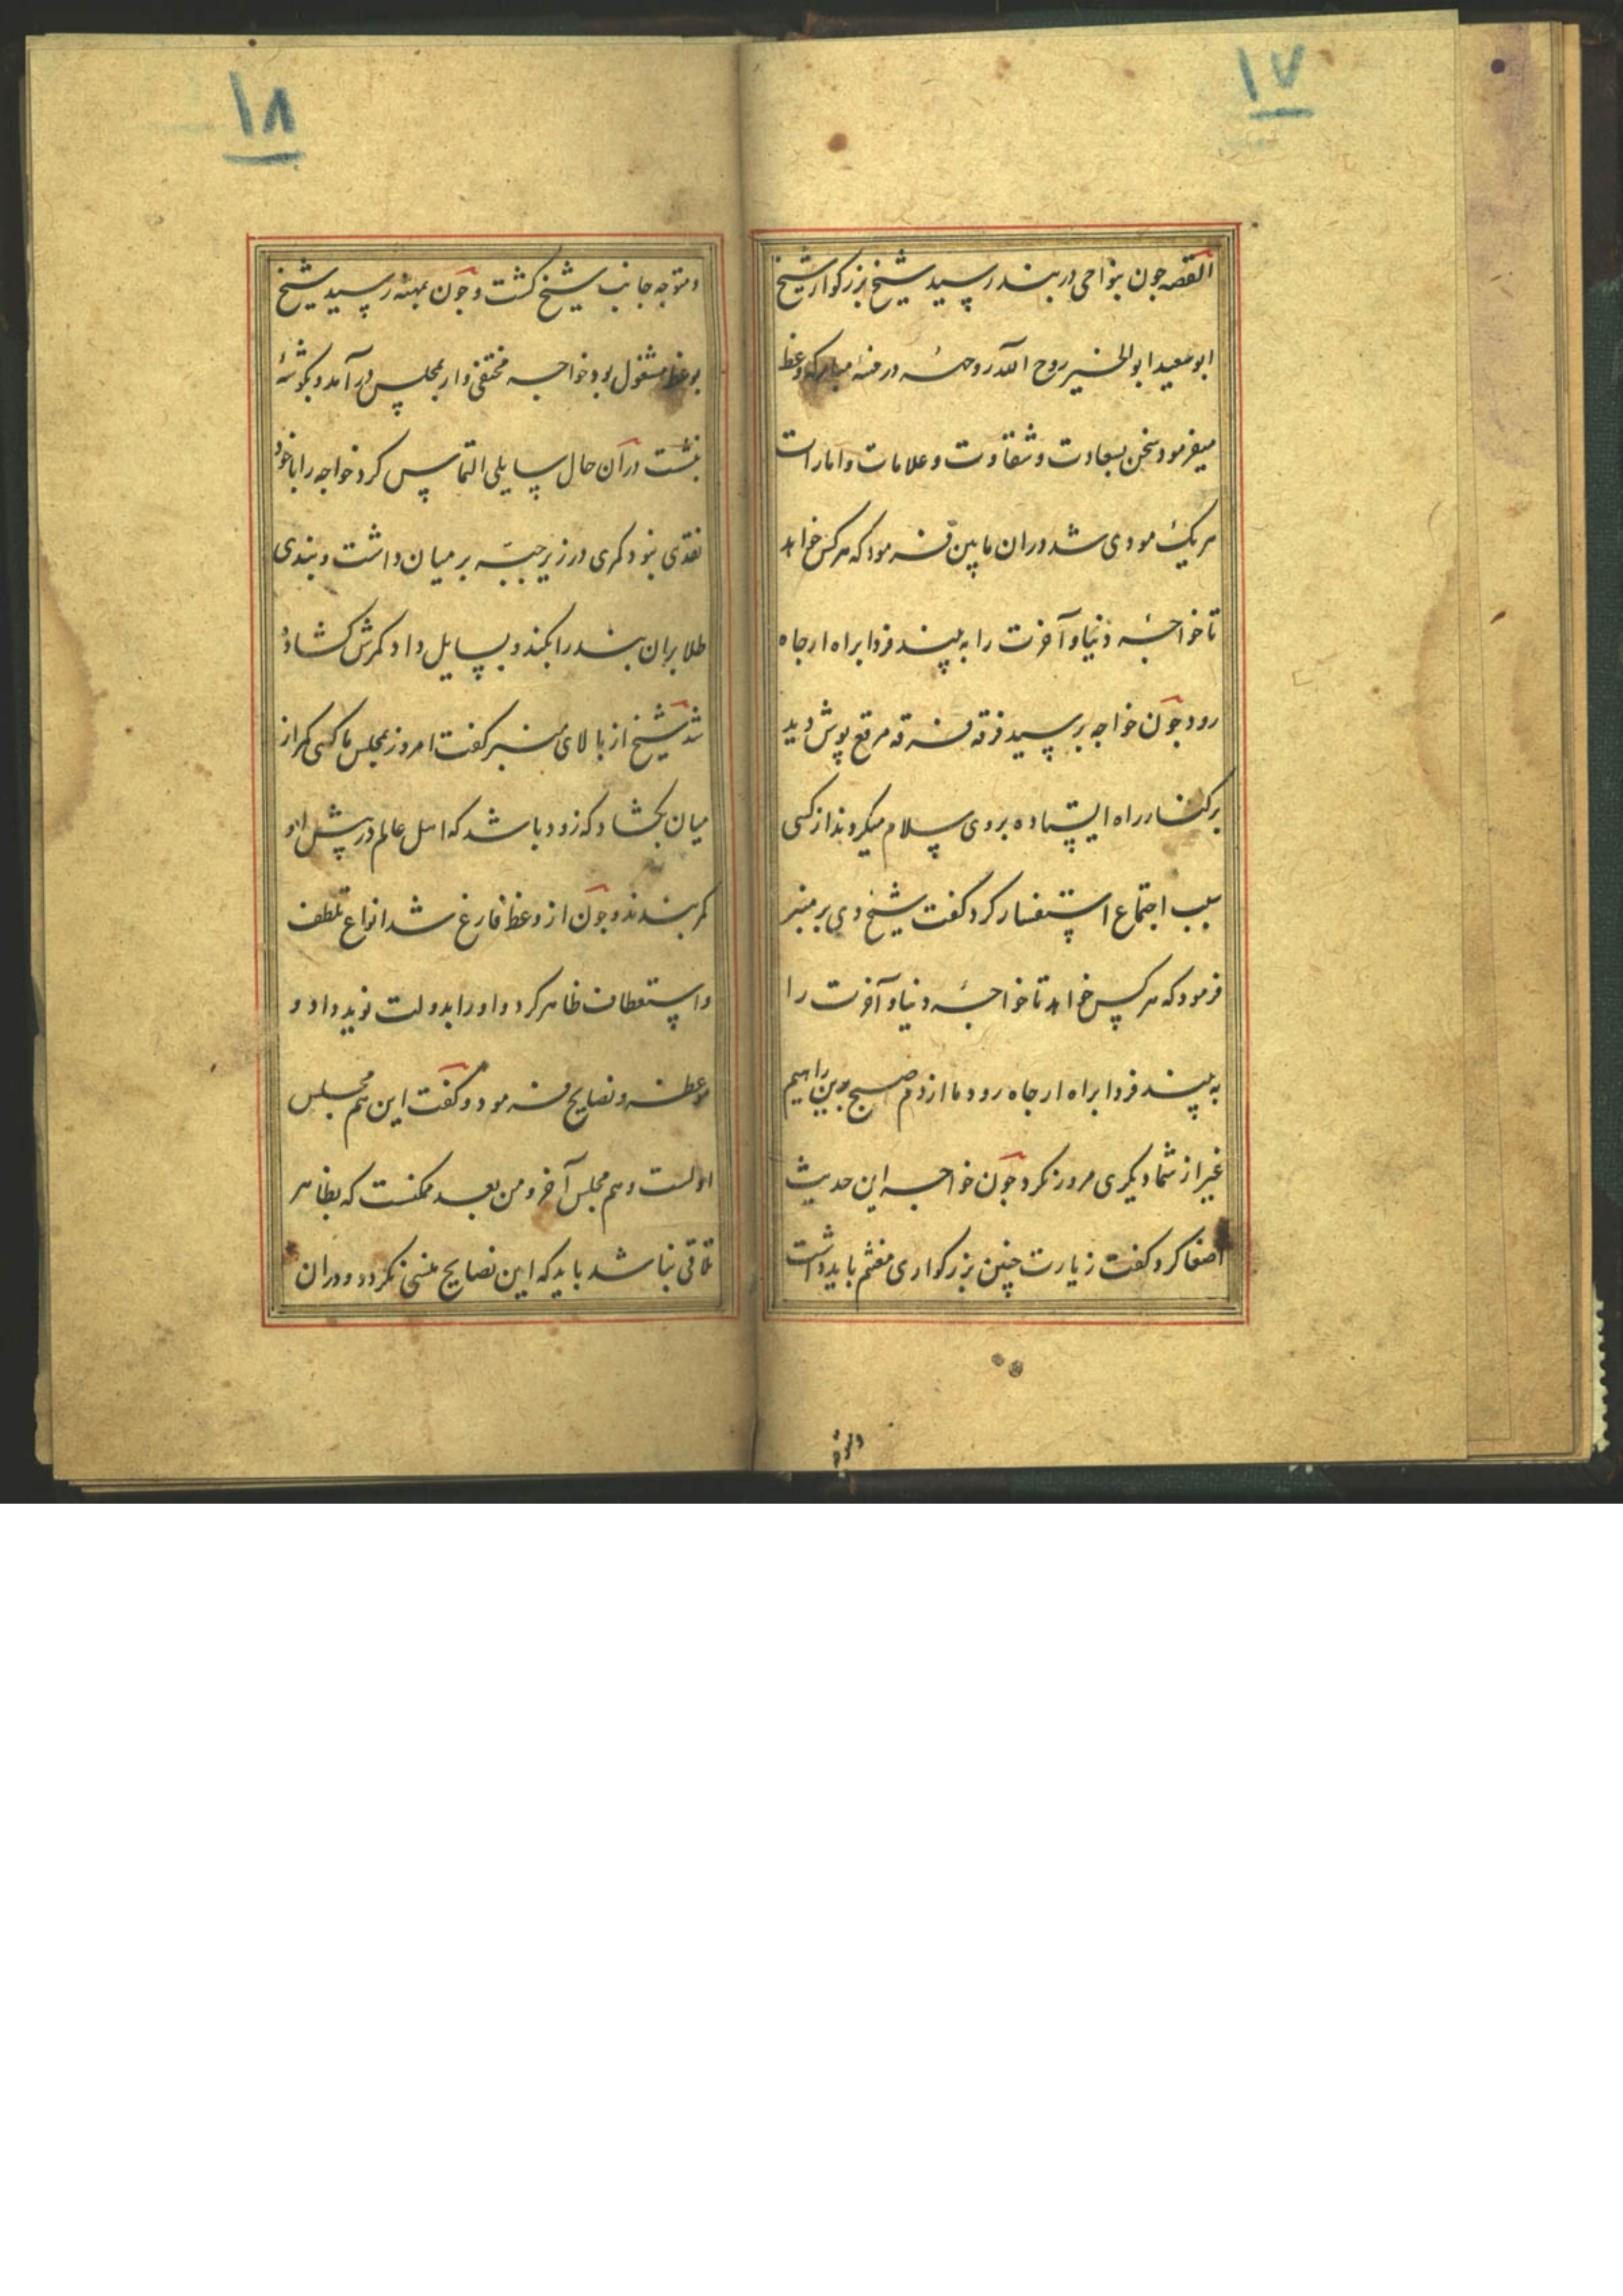 ۱۷
القصه جون بنواحی دربند رسید شیخ بزرکوار شیخ
ابو سعید ابو الخیر روح الله روحه در مهنهٔ مبارکه وعظ
میفرمود سخن بسعادت و شقاوت و علامات و امارات
هر یک مودی شد دران مابین فرمود که هرکس خواهد
تا خواجهٔ دنیا و آخرت را به بیند فردا براه ارجاه
رود جون خواجه برسید فرقه فرقه مرقع پوش دید
بر کنار راه ایستاده بر وی سلام میکردند از کسی
سبب اجتماع استفسار کرد کفت شیخ دی بر منبر
فرمود که هرکس خواهد تا خواجهٔ دنیا و آخرت را
به بیند فردا براه ارجاه رود ما از دم صبح برین راهیم
غیر از شما دیکری مرور نکرد جون خواجه این حدیث
اصغا کرد کفت زیارت چنین بزرکواری مغتنم باید داشت
۱۸
و متوجه جانب شیخ کشت و جون بمهنه رسید شیخ
بوعظ مشغول بود خواجه مختفی وار بمجلس در آمد و بکوشهٔ
بنشست در آن حال سایلی التماس کرد خواجه را با خود
نقدی نبود کمری در زیر جبّه بر میان داشت و بندی
طلا بران بند را بکند و بسایل داد و کمرش کشاده
شد شیخ از بالای منبر کفت امروز بمجلس ما کسی کمر از
میان بکشاد که زود باشد که اهل عالم در پیش او
کمر بندند و جون از وعظ فارغ شد انواع تلطف
و استعطاف ظاهر کرد و او را بدولت نوید داد و
موعظه و نصایح فرمود و کفت این هم مجلس
اولست و هم مجلس آخر و من بعد ممکنست که بظاهر
تلاقی نباشد باید که این نصایح منسی نکردد و دران